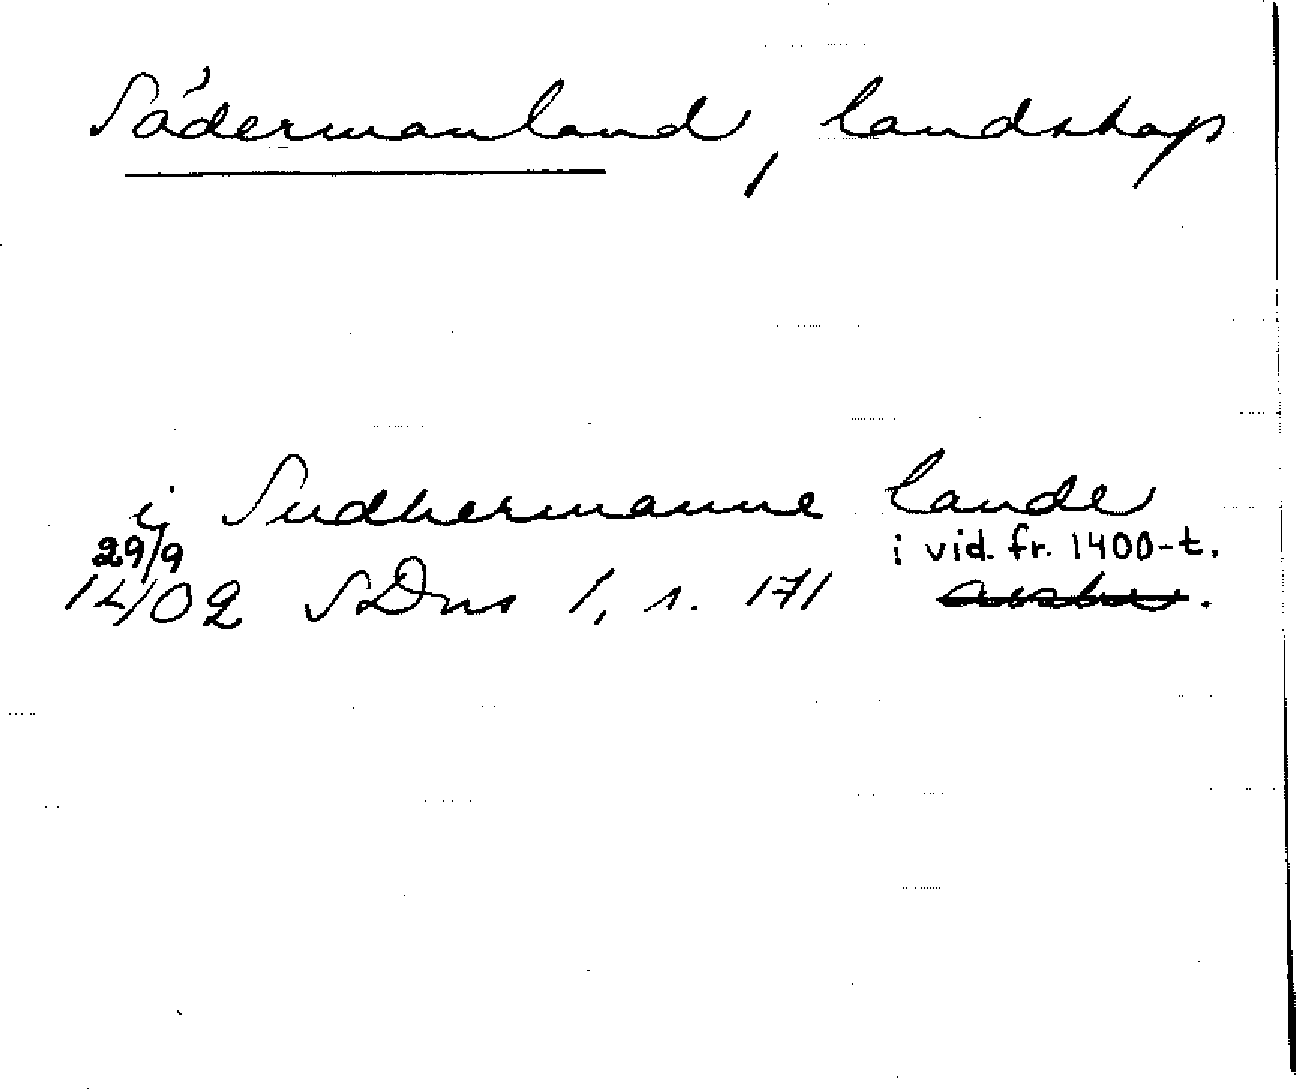 Södermanland, landskap
ij Sudhermanne lande
29/9 i vid. fr. 1400-t.
1402 SDns 1, s. 171